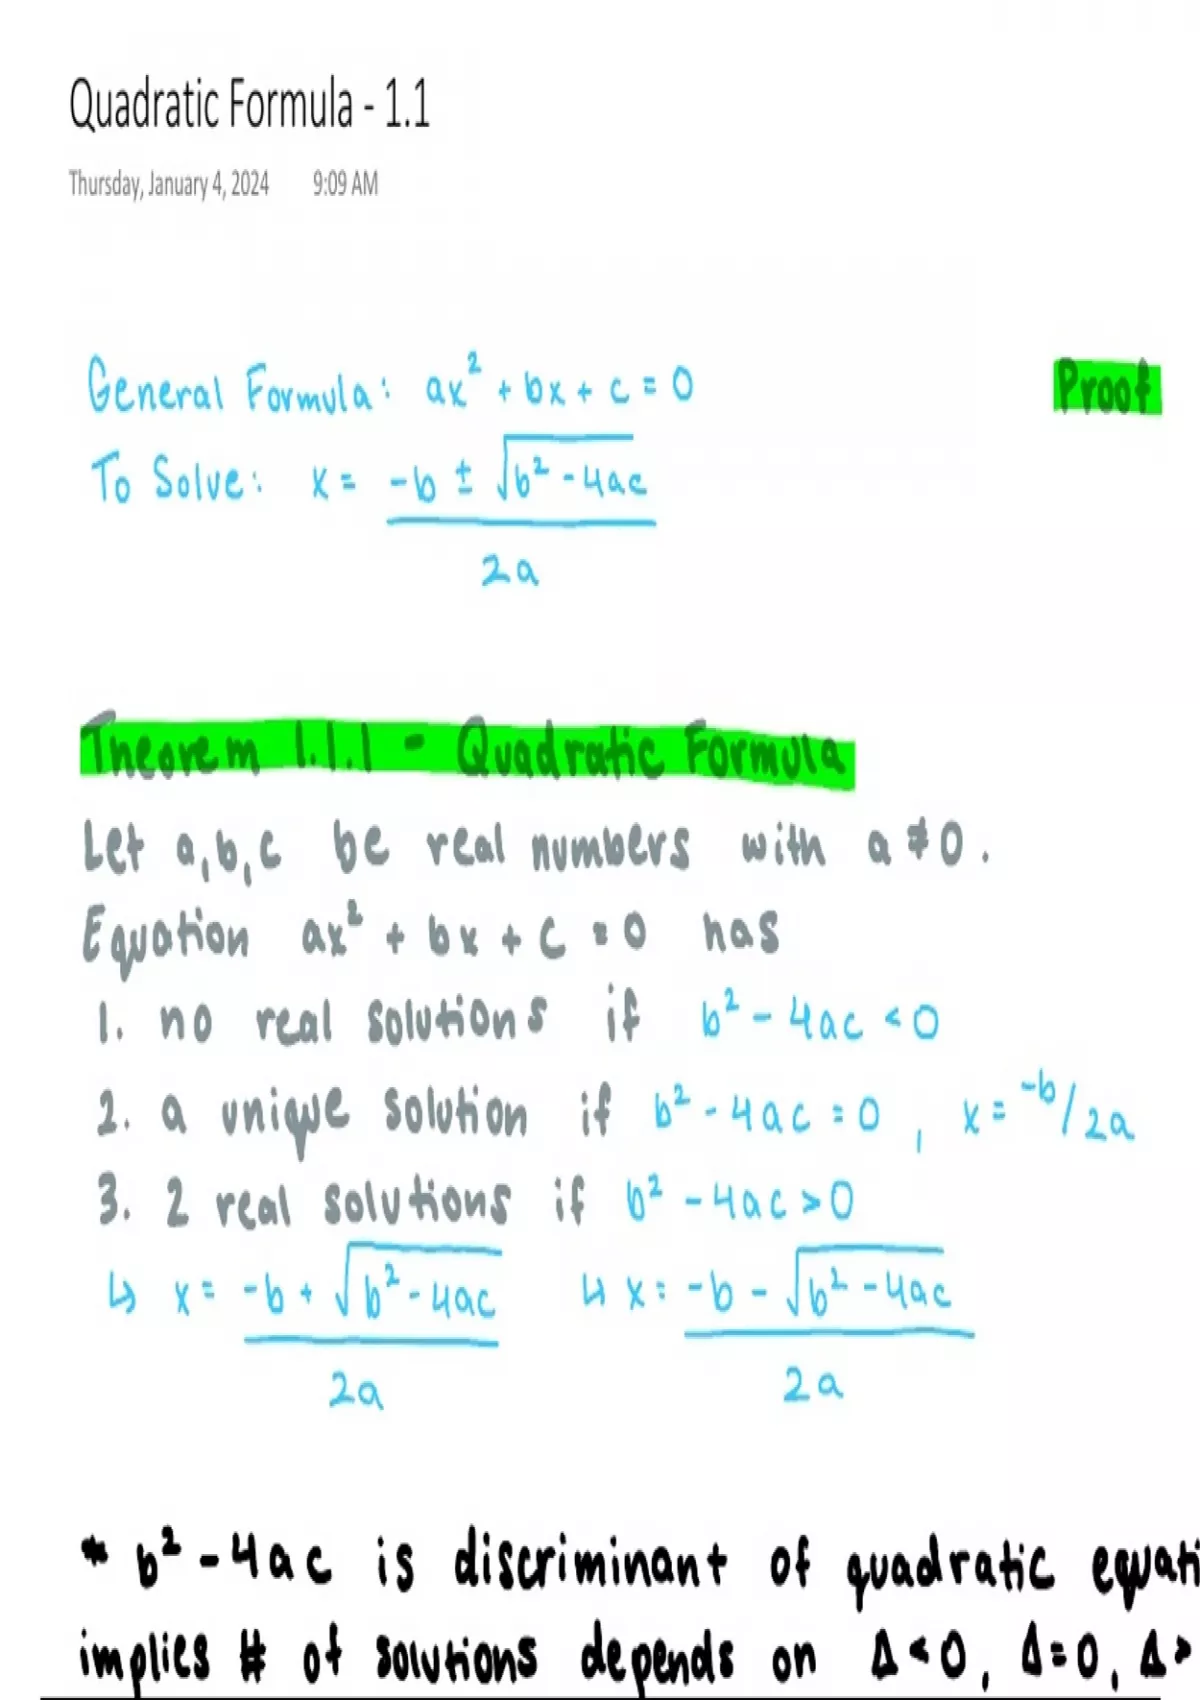 Quadratic Formula - 1.1
Thursday, January 4, 2024 9:09 AM
General Formula: ax² + bx + c = 0
Proof
To Solve: x = -b ± √b² - 4ac
2a
Theorem 1.1.1 - Quadratic Formula
Let a, b, c be real numbers with a ≠ 0.
Equation ax² + bx + c = 0 has
1. no real solutions if b² - 4ac < 0
2. a unique solution if b² - 4ac = 0, x = -b/2a
3. 2 real solutions if b² - 4ac > 0
↳ x = -b + √b² - 4ac ↳ x = -b - √b² - 4ac
2a 2a
* b² - 4ac is discriminant of quadratic equati
implies # of solutions depends on Δ < 0, Δ = 0, Δ >